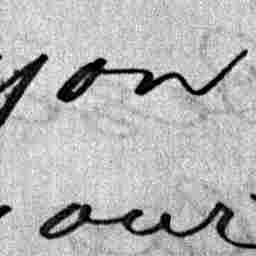 you
your